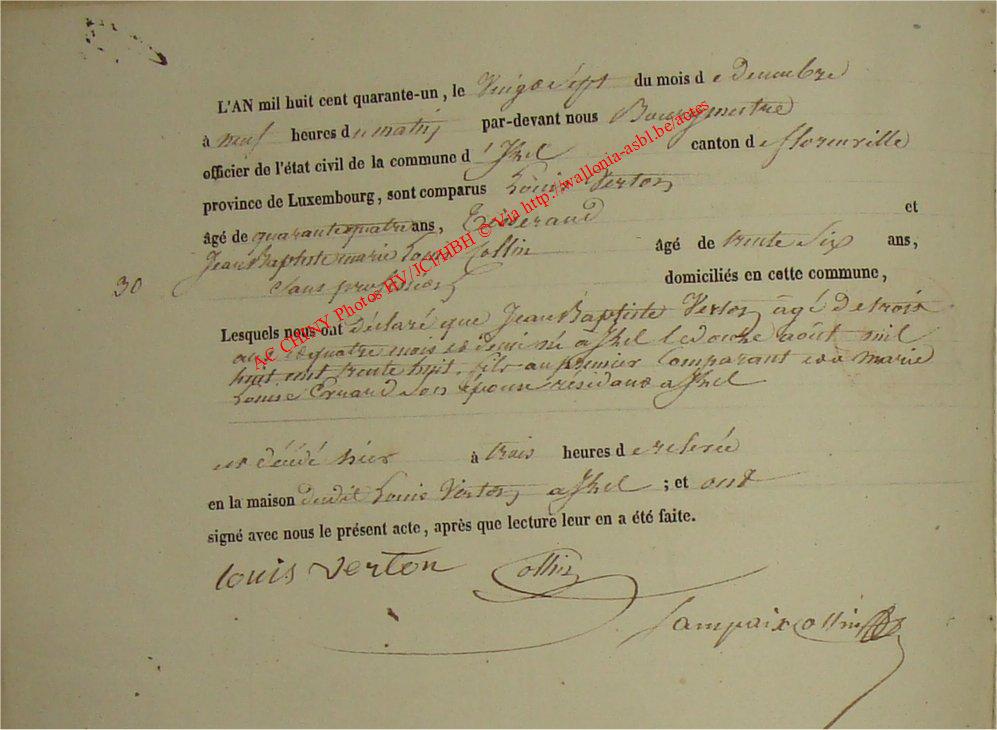 L'AN mil huit cent quarante-un, le Vingt Sept du mois d e Decembre
à neuf heures du matin par-devant nous Bourgmestre
officier de l'état civil de la commune d' Izel canton d e florenville
province de Luxembourg, sont comparus Louis Verton
âgé de quarante quatre ans, Tisserand et
Jean Baptiste marie Louis Collin âgé de trente Six ans,
30 Sans profession domiciliés en cette commune,
Lesquels nous ont déclaré que Jean Baptiste Verton âgé de trois
ans et quatre mois et demi né a Izel le douze août mil
huit cent trente huit, fils au premier Comparant et a marie
Louise Evrard Son épouse résidant a Izel
est décédé hier à trois heures d e relevée
en la maison dudit Louis Verton a Izel ; et ont
signé avec nous le présent acte, après que lecture leur en a été faite.
Louis Verton Collin
Lampaix Collin
AC CHINY Photos HV/JCH/IBH © Via http://wallonia-asbl.be/actes